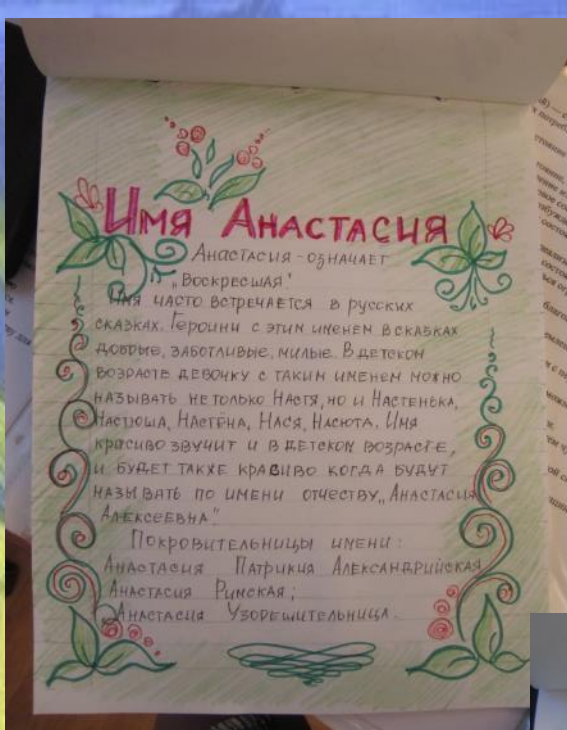 Имя Анастасия
Анастасия - означает
„Воскресшая".
Имя часто встречается в русских
сказках. Героини с этим именем в сказках
добрые, заботливые, милые. В детском
возрасте девочку с таким именем можно
называть не только Настя, но и Настенька,
Настюша, Настёна, Нася, Насюта. Имя
красиво звучит и в детском возрасте,
и будет также красиво когда будут
называть по имени отчеству „Анастасия
Алексеевна."
Покровительницы имени:
Анастасия Патрикия Александрийская
Анастасия Римская;
Анастасия Узорешительница.